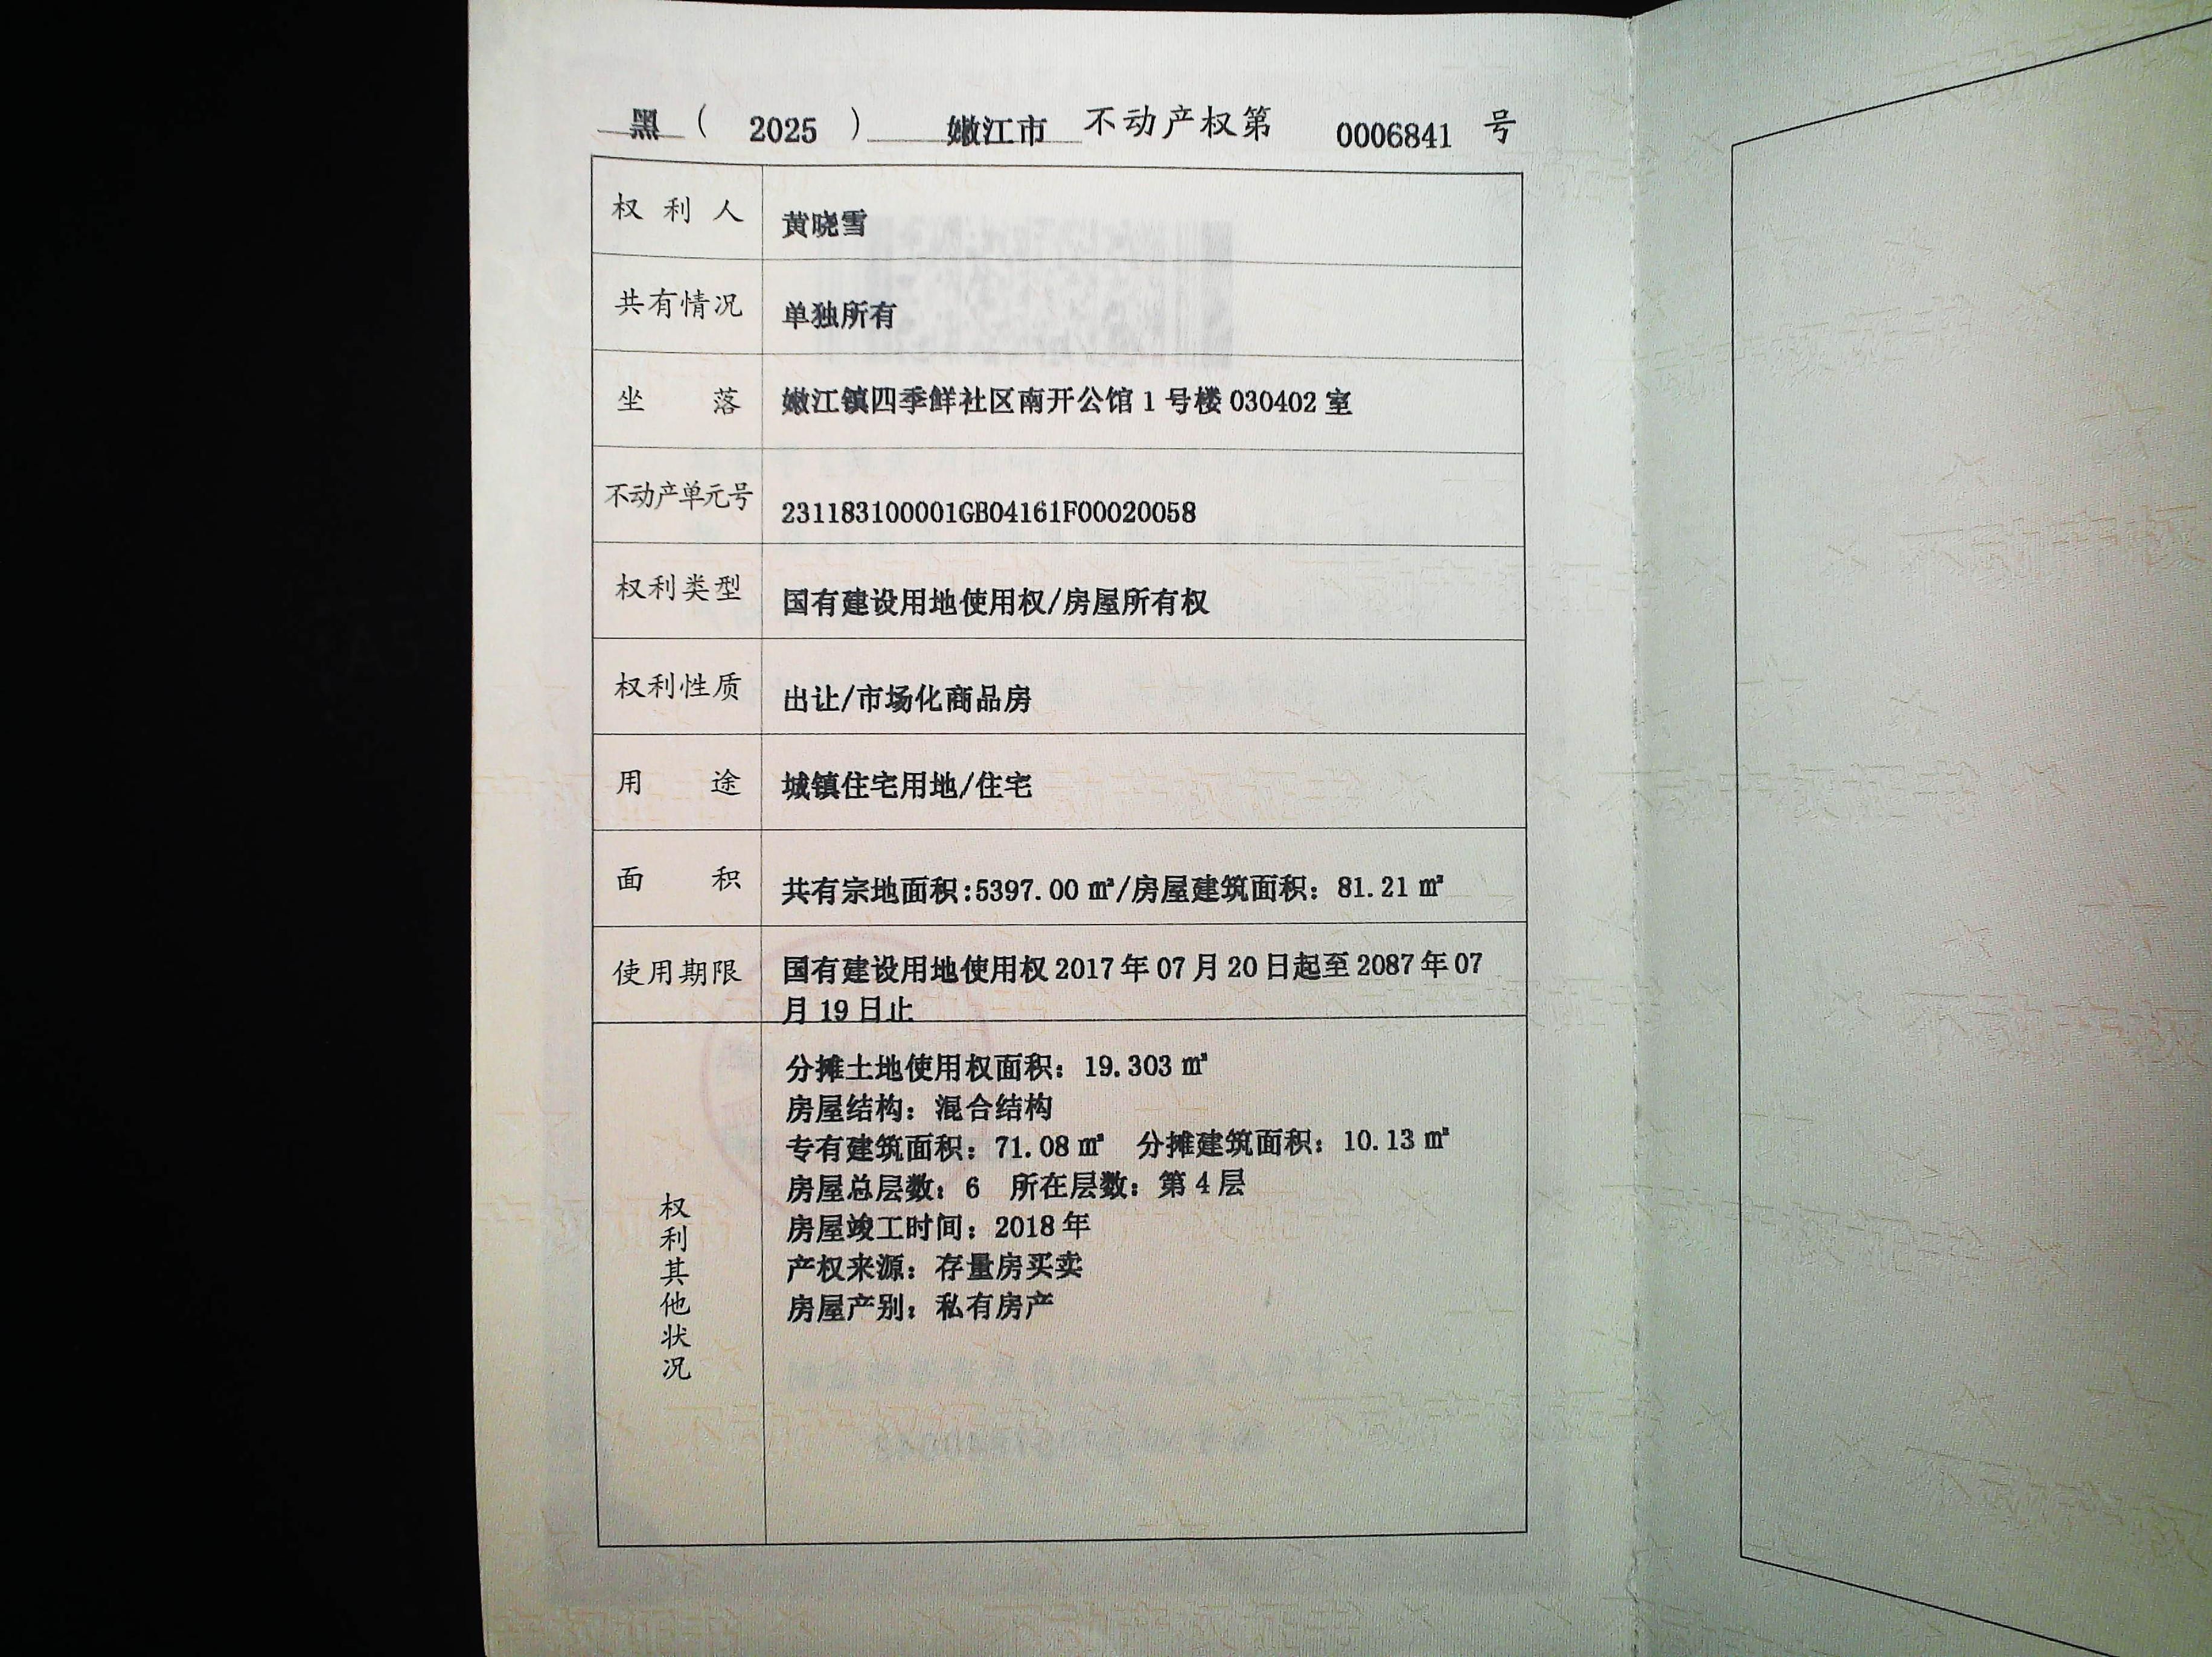 黑（2025）嫩江市不动产权第0006841号
权利人 黄晓雪
共有情况 单独所有
坐落 嫩江镇四季鲜社区南开公馆1号楼030402室
不动产单元号 231183100001GB04161F00020058
权利类型 国有建设用地使用权/房屋所有权
权利性质 出让/市场化商品房
用途 城镇住宅用地/住宅
面积 共有宗地面积:5397.00㎡/房屋建筑面积：81.21㎡
使用期限 国有建设用地使用权2017年07月20日起至2087年07
月19日止
权利其他状况
分摊土地使用权面积：19.303㎡
房屋结构：混合结构
专有建筑面积：71.08㎡ 分摊建筑面积：10.13㎡
房屋总层数：6 所在层数：第4层
房屋竣工时间：2018年
产权来源：存量房买卖
房屋产别：私有房产